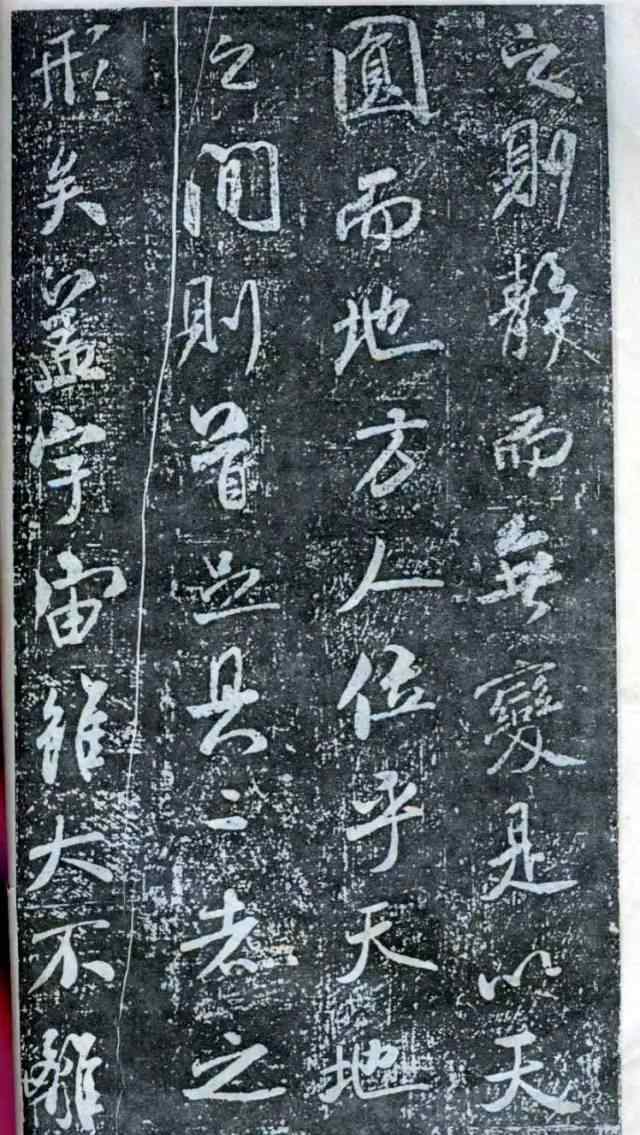 之則靜而無變是以天
圓而地方人位乎天地
之間則首足具二者之
形矣蓋宇宙雖大不離